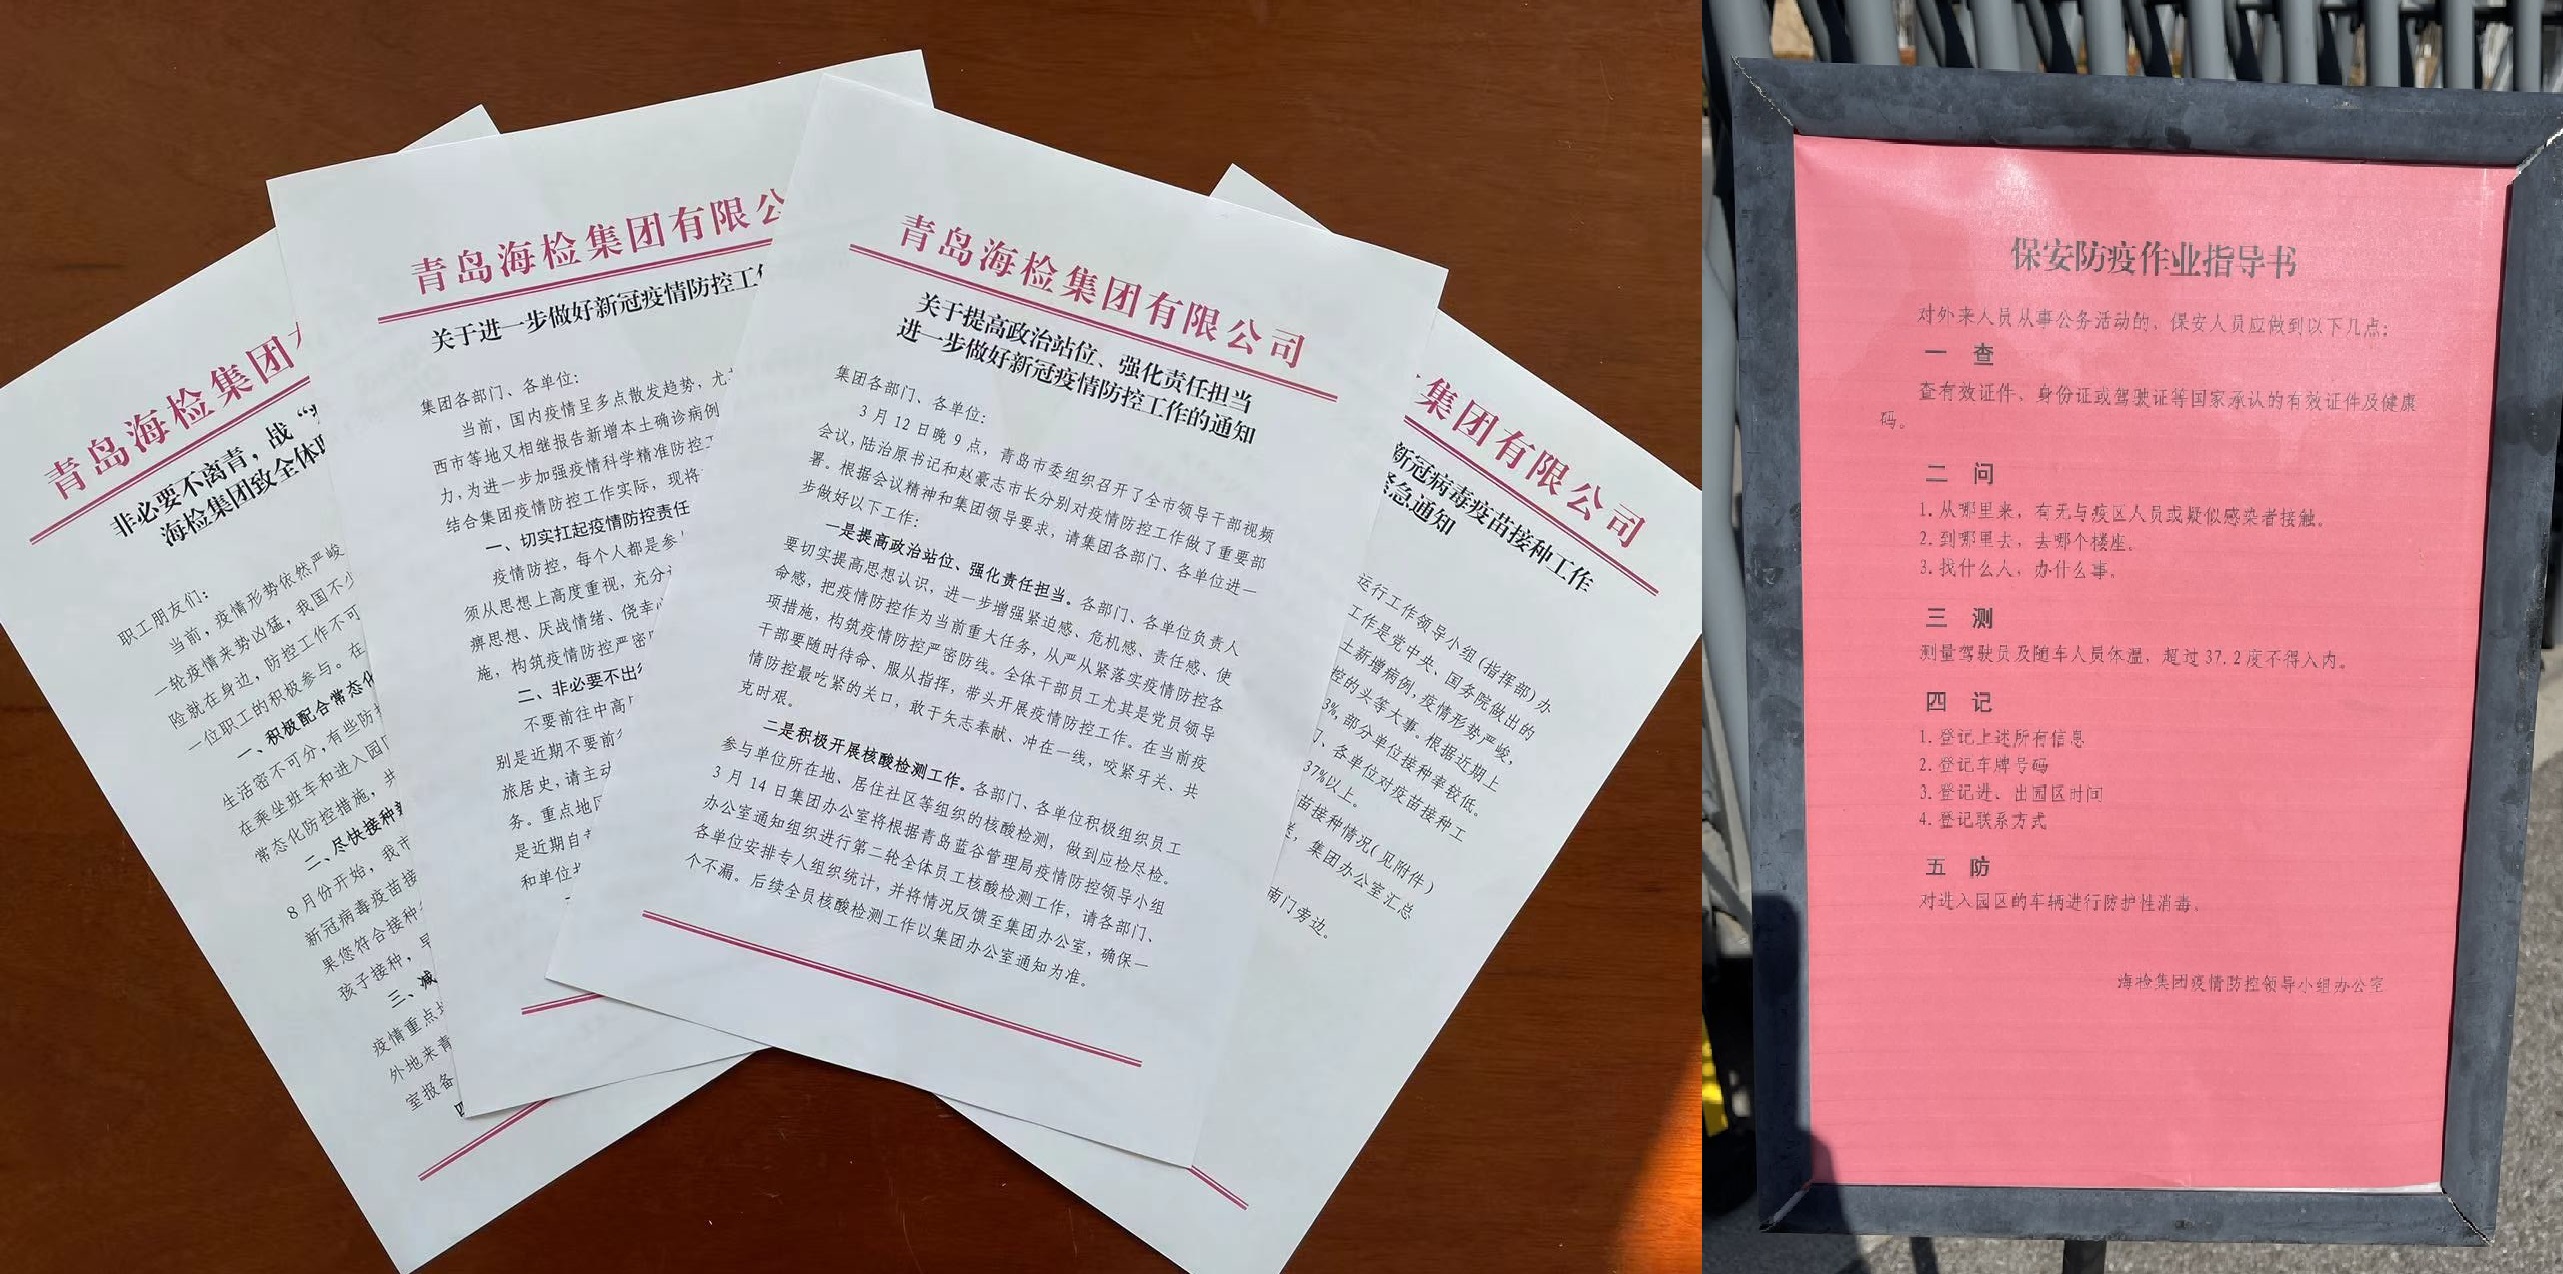 青岛海检集团
非必要不离青，战“
海检集团致全体
职工朋友们：
当前，疫情形势依然严峻
一轮疫情来势凶猛，我国不少
险就在身边，防控工作不可
一位职工的积极参与。在
一、积极配合常态化
生活密不可分，有些防
在乘坐班车和进入园
常态化防控措施，共
二、尽快接种
8月份开始，我市
新冠病毒疫苗接
果您符合接种
孩子接种，早
三、减
疫情重点
外地来青
室报备
青岛海检集团有限公
关于进一步做好新冠疫情防控工作
集团各部门、各单位：
当前，国内疫情呈多点散发趋势，尤
西市等地又相继报告新增本土确诊病例
力，为进一步加强疫情科学精准防控工
结合集团疫情防控工作实际，现将
一、切实扛起疫情防控责任
疫情防控，每个人都是参
须从思想上高度重视，充分
痹思想、厌战情绪、侥幸心
施，构筑疫情防控严密
二、非必要不出
不要前往中高
别是近期不要前
旅居史，请主动
务。重点地
是近期自
和单位
青岛海检集团有限公司
关于提高政治站位、强化责任担当
进一步做好新冠疫情防控工作的通知
集团各部门、各单位：
3月12日晚9点，青岛市委组织召开了全市领导干部视频
会议，陆治原书记和赵豪志市长分别对疫情防控工作做了重要部
署。根据会议精神和集团领导要求，请集团各部门、各单位进一
步做好以下工作：
一是提高政治站位、强化责任担当。各部门、各单位负责人
要切实提高思想认识，进一步增强紧迫感、危机感、责任感、使
命感，把疫情防控作为当前重大任务，从严从紧落实疫情防控各
项措施，构筑疫情防控严密防线。全体干部员工尤其是党员领导
干部要随时待命、服从指挥，带头开展疫情防控工作。在当前疫
情防控最吃紧的关口，敢于矢志奉献、冲在一线，咬紧牙关、共
克时艰。
二是积极开展核酸检测工作。各部门、各单位积极组织员工
参与单位所在地、居住社区等组织的核酸检测，做到应检尽检。
3月14日集团办公室将根据青岛蓝谷管理局疫情防控领导小组
办公室通知组织进行第二轮全体员工核酸检测工作，请各部门、
各单位安排专人组织统计，并将情况反馈至集团办公室，确保一
个不漏。后续全员核酸检测工作以集团办公室通知为准。
集团有限公司
新冠病毒疫苗接种工作
急通知
运行工作领导小组（指挥部）办
工作是党中央、国务院做出的
土新增病例，疫情形势严峻，
控的头等大事。根据近期上
3%，部分单位接种率较低。
、各单位对疫苗接种工
37%以上。
苗接种情况（见附件）
，集团办公室汇总
南门旁边。
保安防疫作业指导书
对外来人员从事公务活动的，保安人员应做到以下几点：
一 查
查有效证件、身份证或驾驶证等国家承认的有效证件及健康
码。
二 问
1. 从哪里来，有无与疫区人员或疑似感染者接触。
2. 到哪里去，去哪个楼座。
3. 找什么人，办什么事。
三 测
测量驾驶员及随车人员体温，超过37.2度不得入内。
四 记
1. 登记上述所有信息
2. 登记车牌号码
3. 登记进、出园区时间
4. 登记联系方式
五 防
对进入园区的车辆进行防护性消毒。
海检集团疫情防控领导小组办公室